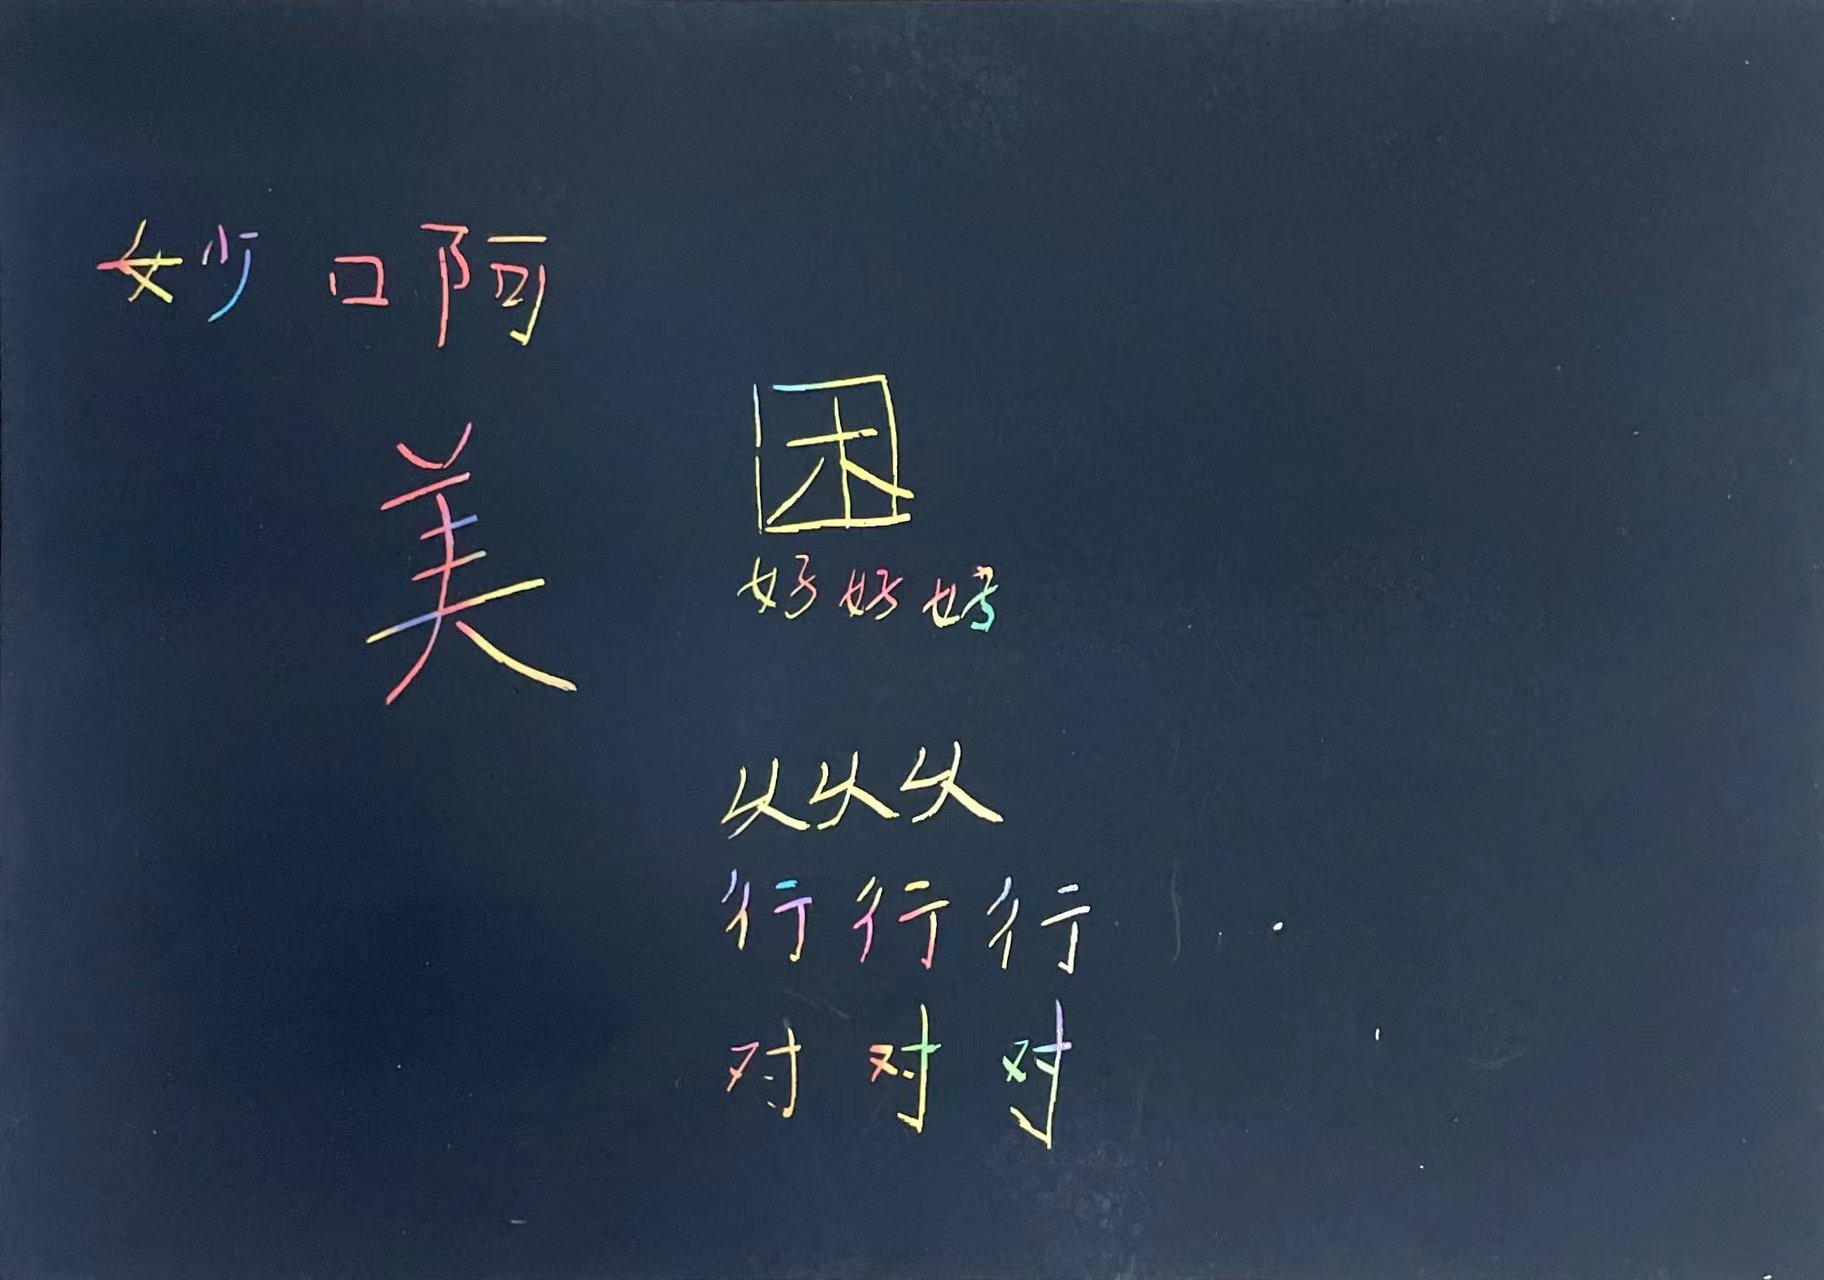 妙啊
美
困
好好好
从从从
行行行
对对对